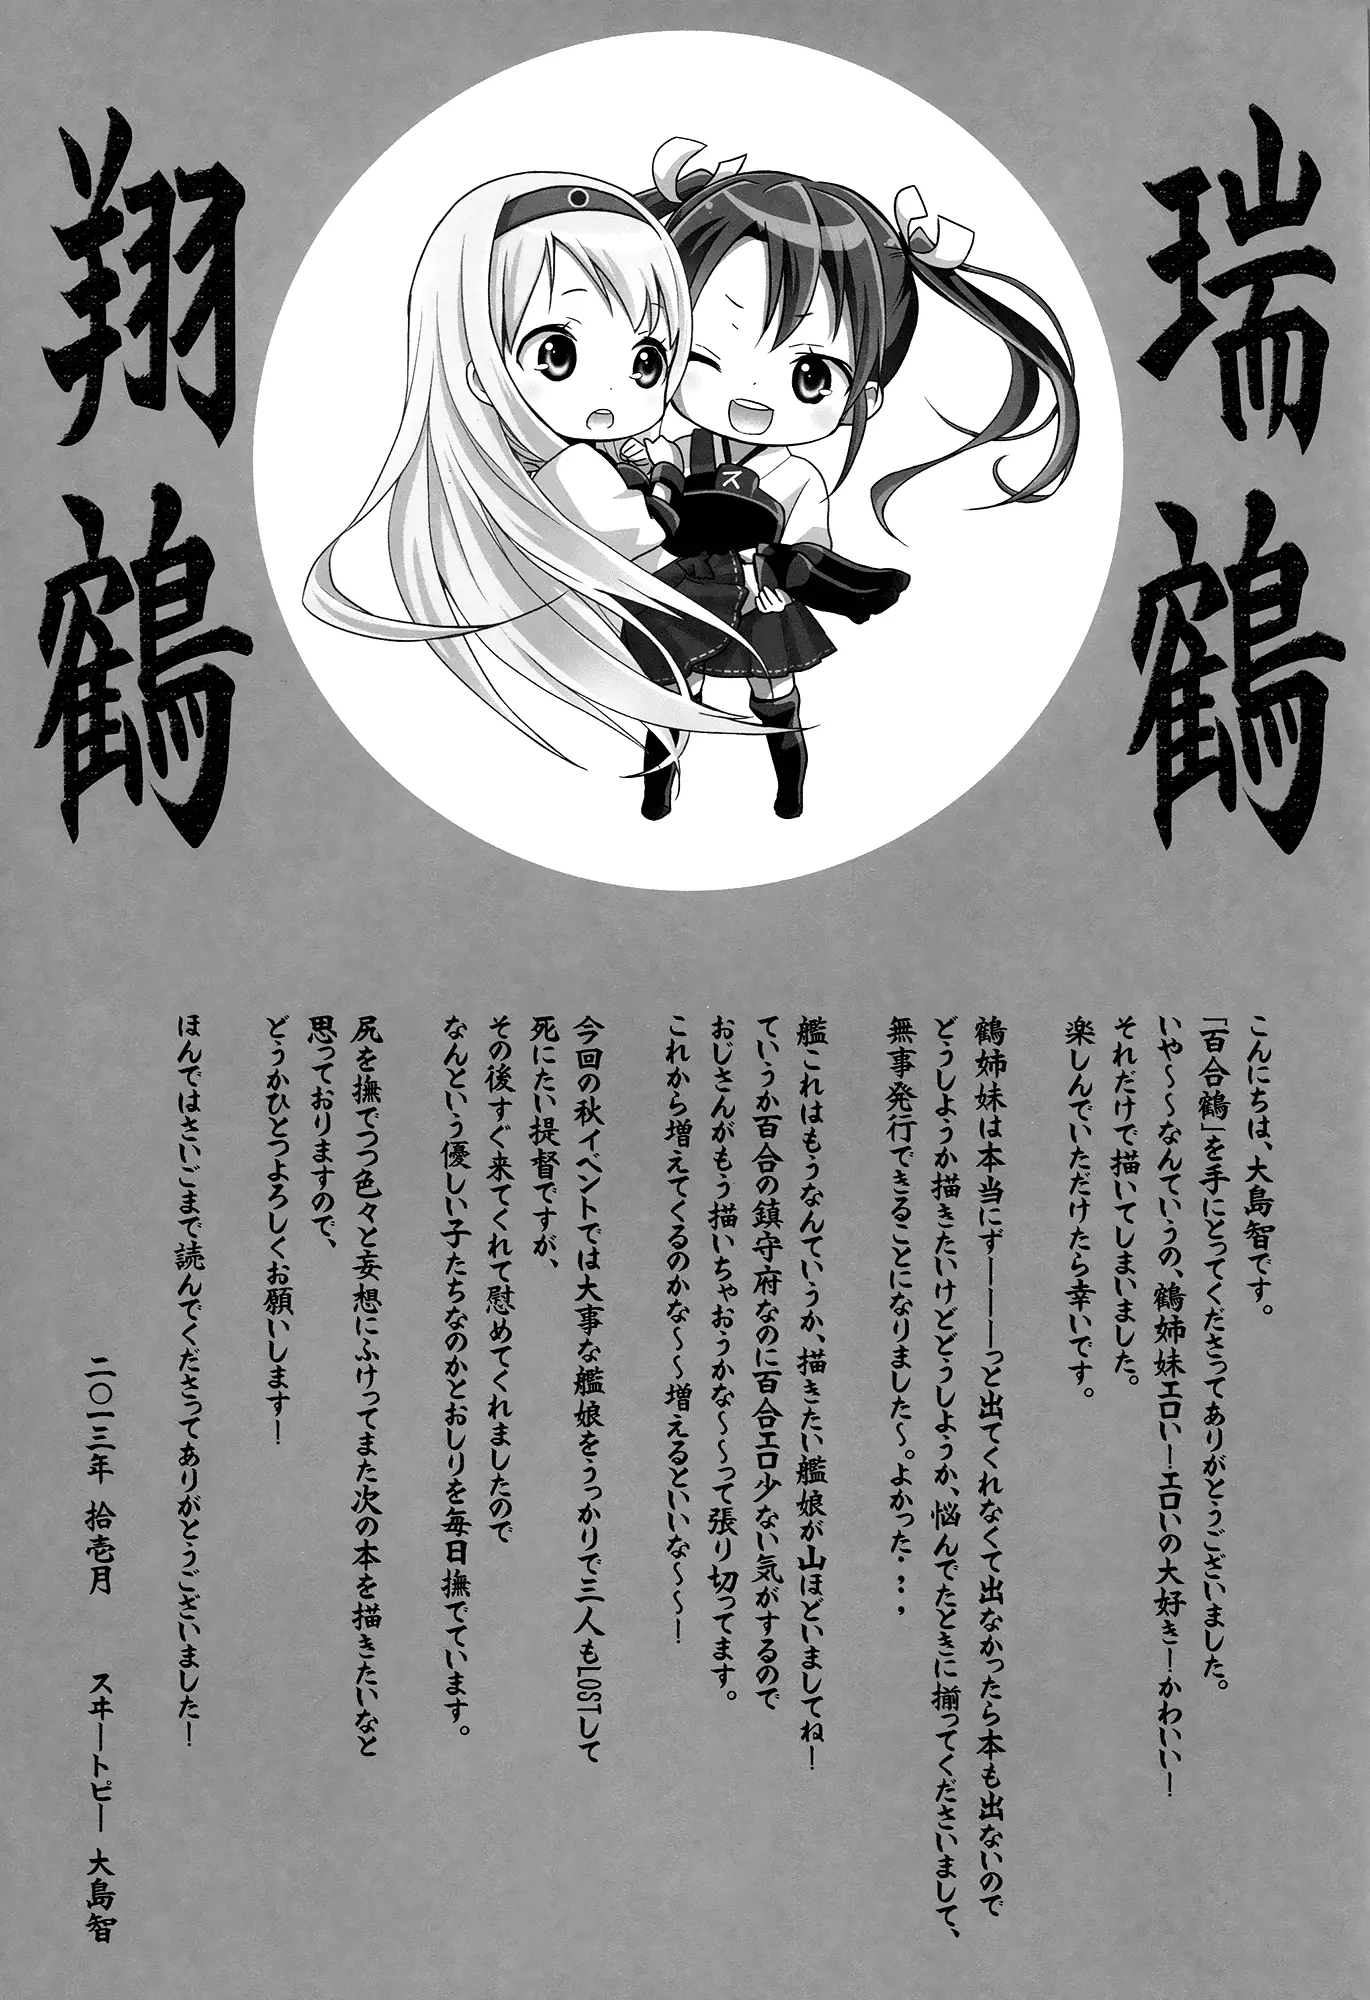 瑞鶴
翔鶴
ス
こんにちは、大島智です。
「百合鶴」を手にとってくださってありがとうございました。
いや〜〜なんていうの、鶴姉妹エロい！エロいの大好き！かわいい！
それだけで描いてしまいました。
楽しんでいただけたら幸いです。
鶴姉妹は本当にず―――っと出てくれなくて出なかったら本も出ないので
どうしようか描きたいけどどうしようか、悩んでたときに揃ってくださいまして、
無事発行できることになりました〜。よかった・・・
艦これはもうなんていうか、描きたい艦娘が山ほどいましてね！
ていうか百合の鎮守府なのに百合エロ少ない気がするので
おじさんがもう描いちゃおうかな〜〜って張り切ってます。
これから増えてくるのかな〜〜増えるといいな〜〜！
今回の秋イベントでは大事な艦娘をうっかりで三人もLOSTして
死にたい提督ですが、
その後すぐ来てくれて慰めてくれましたので
なんという優しい子たちなのかとおしりを毎日撫でています。
尻を撫でつつ色々と妄想にふけってまた次の本を描きたいなと
思っておりますので、
どうかひとつよろしくお願いします！
ほんではさいごまで読んでくださってありがとうございました！
二〇一三年 拾壱月 スヰートピー 大島智